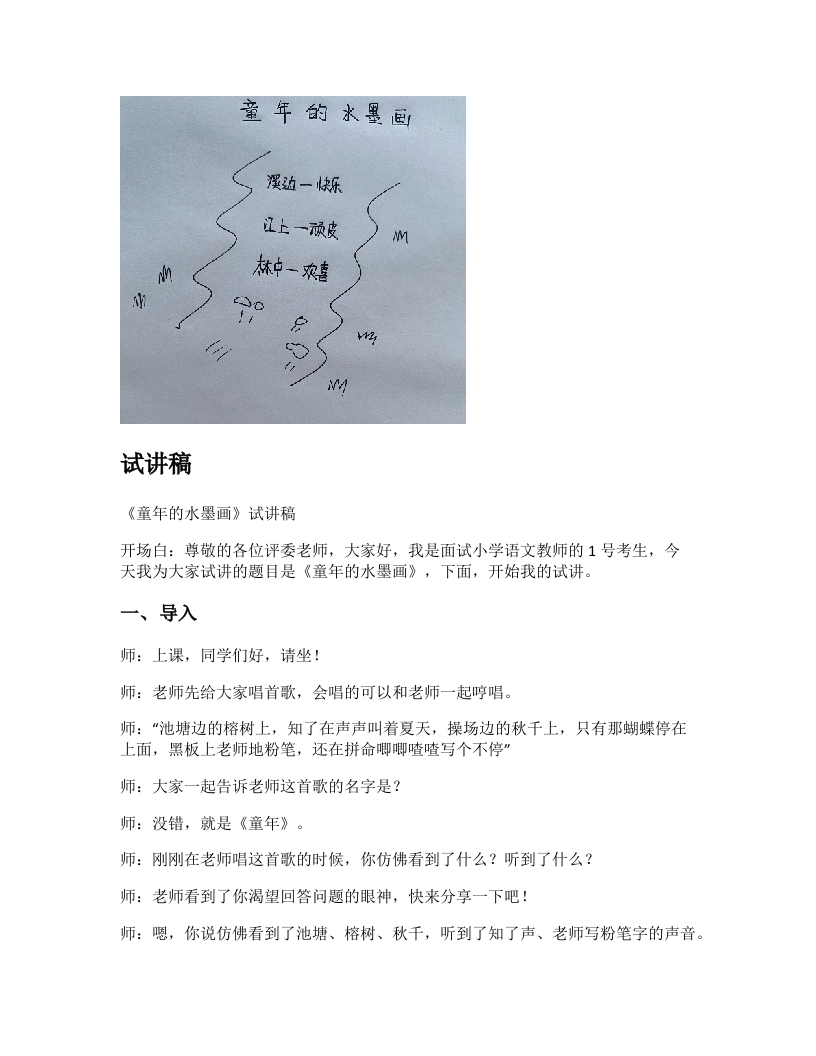 童年的水墨画
溪边一快乐
江上一顽皮
林中一欢喜
试讲稿
《童年的水墨画》试讲稿
开场白：尊敬的各位评委老师，大家好，我是面试小学语文教师的 1 号考生，今
天我为大家试讲的题目是《童年的水墨画》，下面，开始我的试讲。
一、导入
师：上课，同学们好，请坐！
师：老师先给大家唱首歌，会唱的可以和老师一起哼唱。
师：“池塘边的榕树上，知了在声声叫着夏天，操场边的秋千上，只有那蝴蝶停在
上面，黑板上老师地粉笔，还在拼命唧唧喳喳写个不停”
师：大家一起告诉老师这首歌的名字是？
师：没错，就是《童年》。
师：刚刚在老师唱这首歌的时候，你仿佛看到了什么？听到了什么？
师：老师看到了你渴望回答问题的眼神，快来分享一下吧！
师：嗯，你说仿佛看到了池塘、榕树、秋千，听到了知了声、老师写粉笔字的声音。